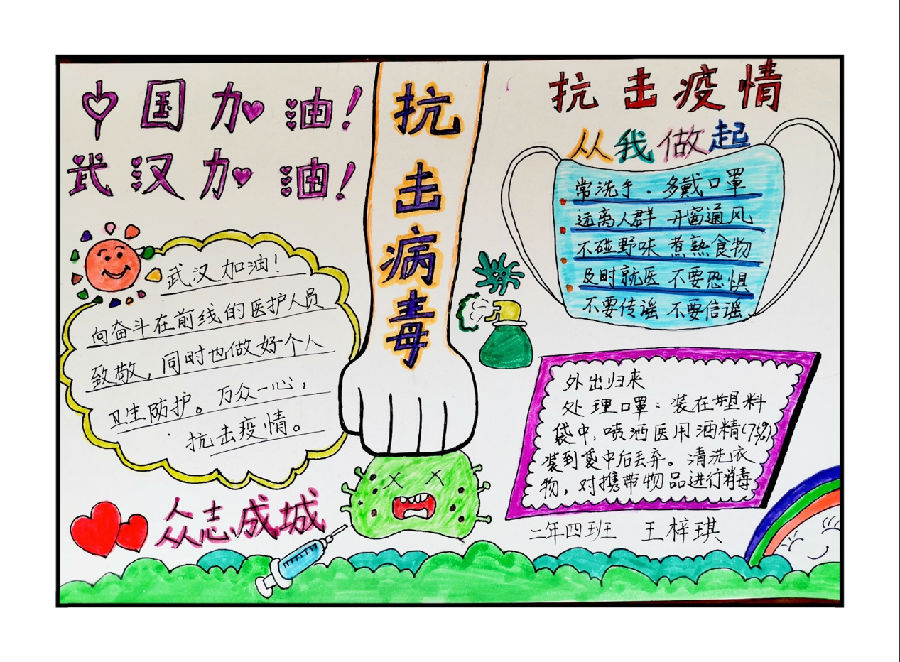 中国加油！
武汉加油！
抗击病毒
抗击疫情
从我做起
常洗手．多戴口罩
远离人群 开窗通风
不碰野味 煮熟食物
及时就医 不要恐惧
不要传谣 不要信谣
武汉加油！
向奋斗在前线的医护人员
致敬，同时也做好个人
卫生防护。万众一心，
抗击疫情。
众志成城
外出归来
处理口罩：装在塑料
袋中，喷洒医用酒精(75%)
装到袋中后丢弃。清洗衣
物，对携带物品进行消毒
二年四班 王梓琪